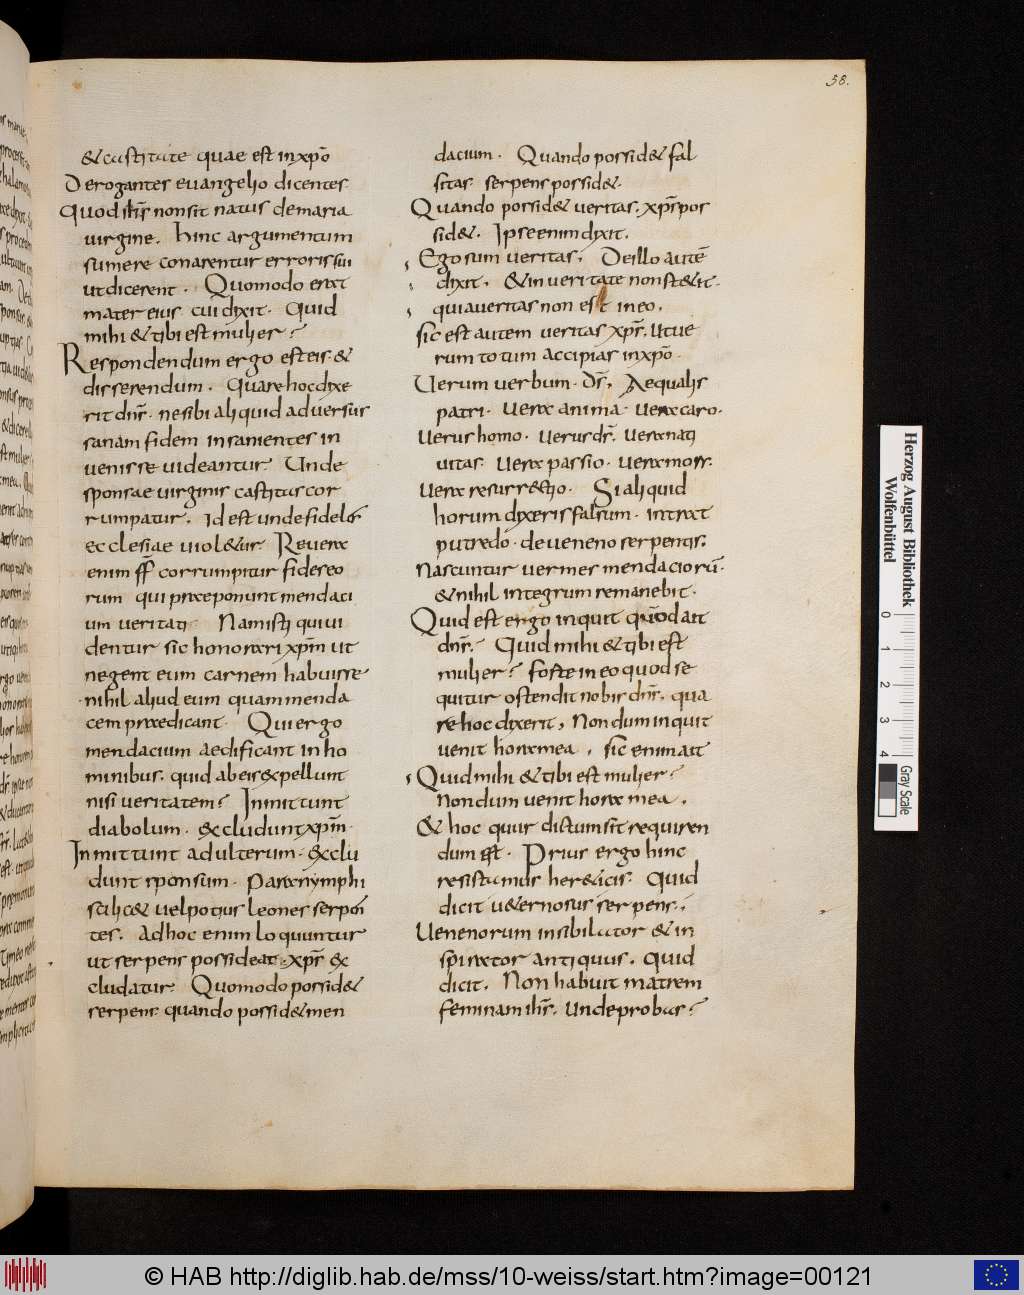 58.
& castitate quae est inxp̄o
Derogantes euangelio dicentes
Quod ih̄s non sit natus demaria
uirgine. hinc argumentum
sumere conarentur erroris sui
utdicerent. Quomodo erat
mater eius cui dixit. Quid
mihi & tibi est mulier?
Respondendum ergo est eis. &
disserendum. Quare hoc dixe
rit dn̄s. nesibi aliquid aduersus
sanam fidem insanientes in
uenisse uideantur. Unde
sponsae uirginis castitas cor
rumpatur. id est unde fides
ecclesiae uiol&ur. Reuera
enim corrumpitur fides eo
rum qui praeponunt mendaci
um ueritati. Nam isti qui ui
dentur sic honorari xp̄m ut
negent eum carnem habuisse
nihil aliud eum quam menda
cem praedicant. Qui ergo
mendacium aedificant in ho
minibus. quid ab eis expellunt
nisi ueritatem? Inmittunt
diabolum. excludunt xp̄m.
Inmittunt adulterum. exclu
dunt sponsum. Paranymphi
scilic& uel potius leones serpen
tes. Adhoc enim loquuntur
ut serpens possideat. xp̄s ex
cludatur. Quomodo possid&
serpens. quando possid& men
dacium. Quando possid& fal
sitas. serpens possid&.
Quando possid& ueritas. xp̄s pos
sid&. Ipse enim dixit.
Ego sum ueritas. De illo autē
dixit. & in ueritate non st&it.
quia ueritas non est in eo.
sic est autem ueritas xp̄s. Ut ue
rum totum accipias inxp̄o.
Uerum uerbum. ds̄. Aequalis
patri. Uera anima. Uera caro.
Uerus homo. Uerus ds̄. Uera nati
uitas. Uera passio. Uera mors.
Uera resurrectio. Si aliquid
horum dixeris falsum. intrat
putredo. de ueneno serpentis.
Nascuntur uermes mendaciorū.
& nihil integrum remanebit.
Quid est ergo inquit quod ait
dn̄s. Quid mihi & tibi est
mulier? Forte in eo quod se
quitur ostendit nobis dn̄s. qua
re hoc dixerit. Nondum inquit
uenit hora mea. sic enim ait
Quid mihi & tibi est mulier?
Nondum uenit hora mea.
& hoc quur dictum sit requiren
dum est. Prius ergo hinc
resistamus her&icis. Quid
dicit u&ernosus serpens.
Uenenorum insibilator & in
spirator antiquus. Quid
dicit. Non habuit matrem
feminam ih̄s. Unde probas?
Herzog August Bibliothek
Wolfenbüttel
0 1 2 3 4
Gray Scale
© HAB http://diglib.hab.de/mss/10-weiss/start.htm?image=00121